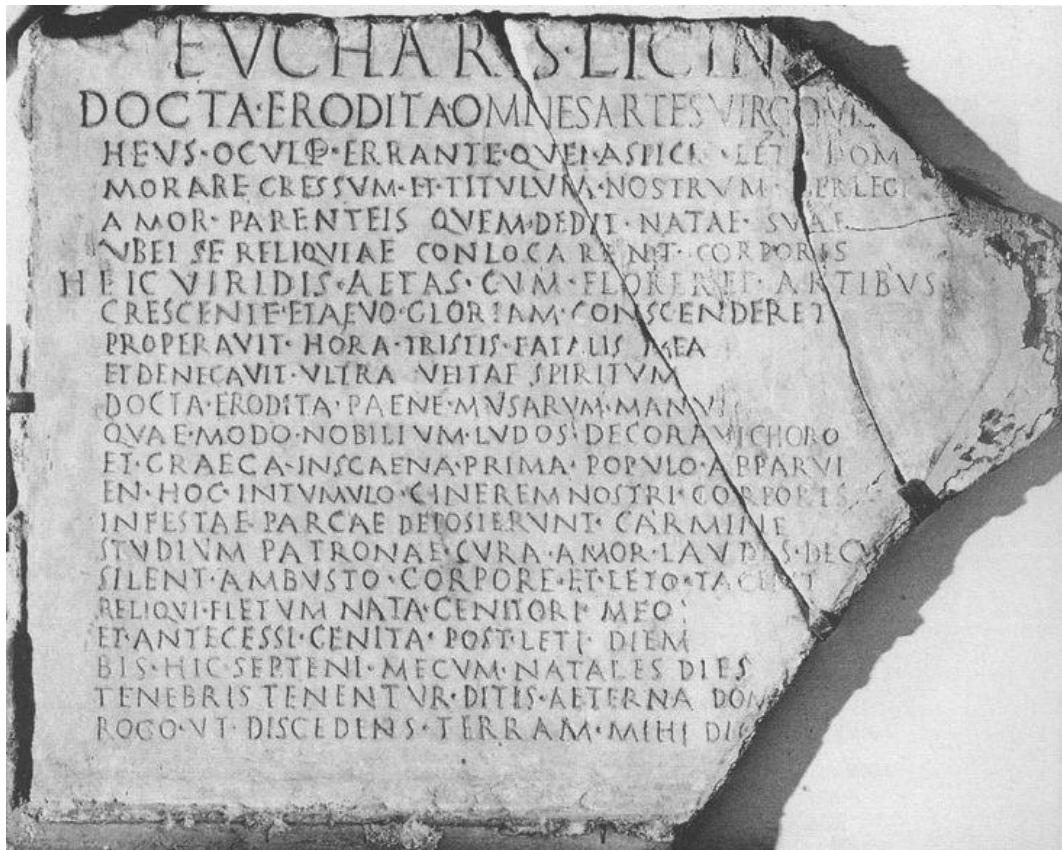 EVCHARIS·LICIN
DOCTA·ERODITA·OMNES ARTES VIRGO VIX
HEVS·OCVLO·ERRANTE·QVEI·ASPICIS·LETI·DOM
MORARE GRESSVM·ET·TITVLVM·NOSTRVM·PERLEGE
AMOR·PARENTEIS QVEM·DEDIT·NATAE·SVAE
VBEI SE RELIQVIAE CONLOCARENT·CORPORIS
HEIC VIRIDIS·AETAS·CVM·FLORERET·ARTIBVS
CRESCENTE·ET AEVO·GLORIAM·CONSCENDERET
PROPERAVIT·HORA·TRISTIS·FATALIS MEA
ET DENEGAVIT·VLTRA VEITAE SPIRITVM
DOCTA·ERODITA·PAENE·MVSARVM·MANV
QVAE·MODO·NOBILIVM·LVDOS·DECORAVI CHORO
ET·GRAECA·IN SCAENA·PRIMA·POPVLO·APPARVI
EN·HOC·IN TVMVLO·CINEREM NOSTRI·CORPORIS
INFESTAE·PARCAE DEPOSIERVNT·CARMINE
STVDIVM PATRONAE·CVRA·AMOR·LAVDES·DECVS
SILENT·AMBVSTO·CORPORE·ET·LETO·TACENT
RELIQVI·FLETVM NATA·GENITORI·MEO
ET·ANTECESSI·GENITA·POST·LETI·DIEM
BIS·HIC·SEPTENI·MECVM·NATALES DIES
TENEBRIS TENENTVR·DITIS·AETERNA DOM
ROGO·VT·DISCEDENS·TERRAM·MIHI DIC